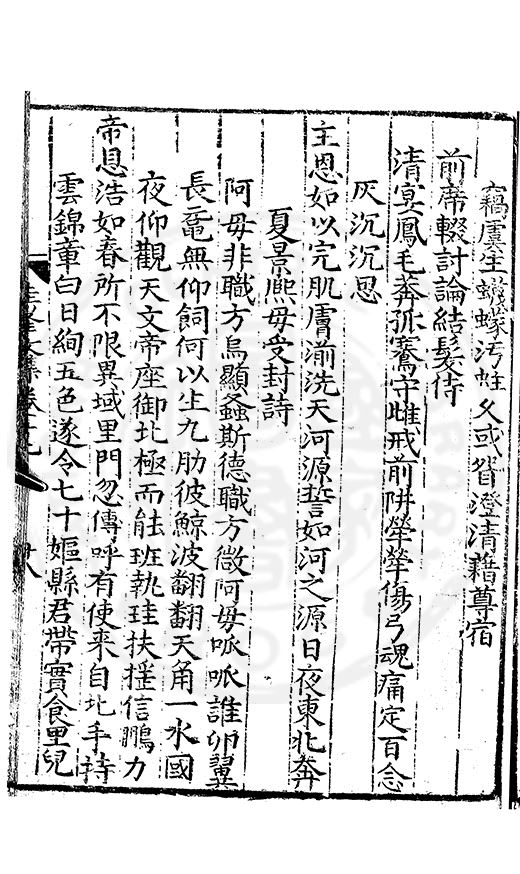 竊虞生蠛蠓汚蛀久或眥澄清藉尊宿
前席輟討論結髮侍
清宴鳳毛奔孤騫守雌戒前阱犖犖傷弓魂痛定百念
灰沉沉思
主恩如以完肌膚湔洗天河源誓如河之源日夜東北奔
夏景熈毋受封詩
阿毋非職方烏顯螽斯德職方微阿毋呱呱誰卵翼
長黿無仰飼何以生九肋彼鯨波翻翻天角一水國
夜仰觀天文帝座御北極而能班執珪扶揺信鵬力
帝恩浩如春所不限異域里門忽傳呼有使来自北手持
雲錦章白日絢五色遂令七十嫗縣君帶實食里兒
文集卷十九
廿八